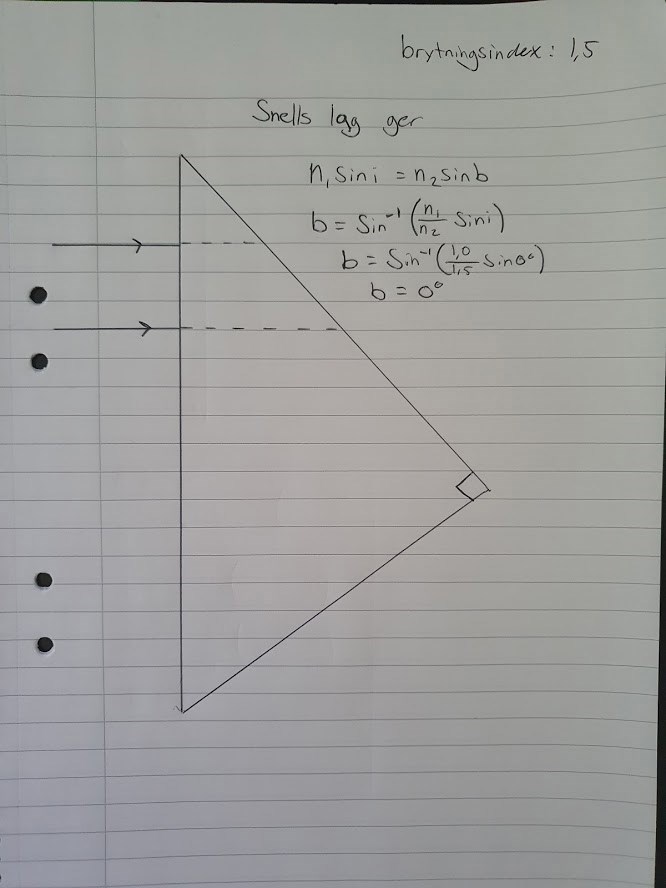 brytningsindex: 1,5
Snells lag ger
n₁ sin i = n₂ sin b
b = Sin⁻¹ (n₁/n₂ Sin i)
b = Sin⁻¹ (1,0/1,5 Sin 0°)
b = 0°